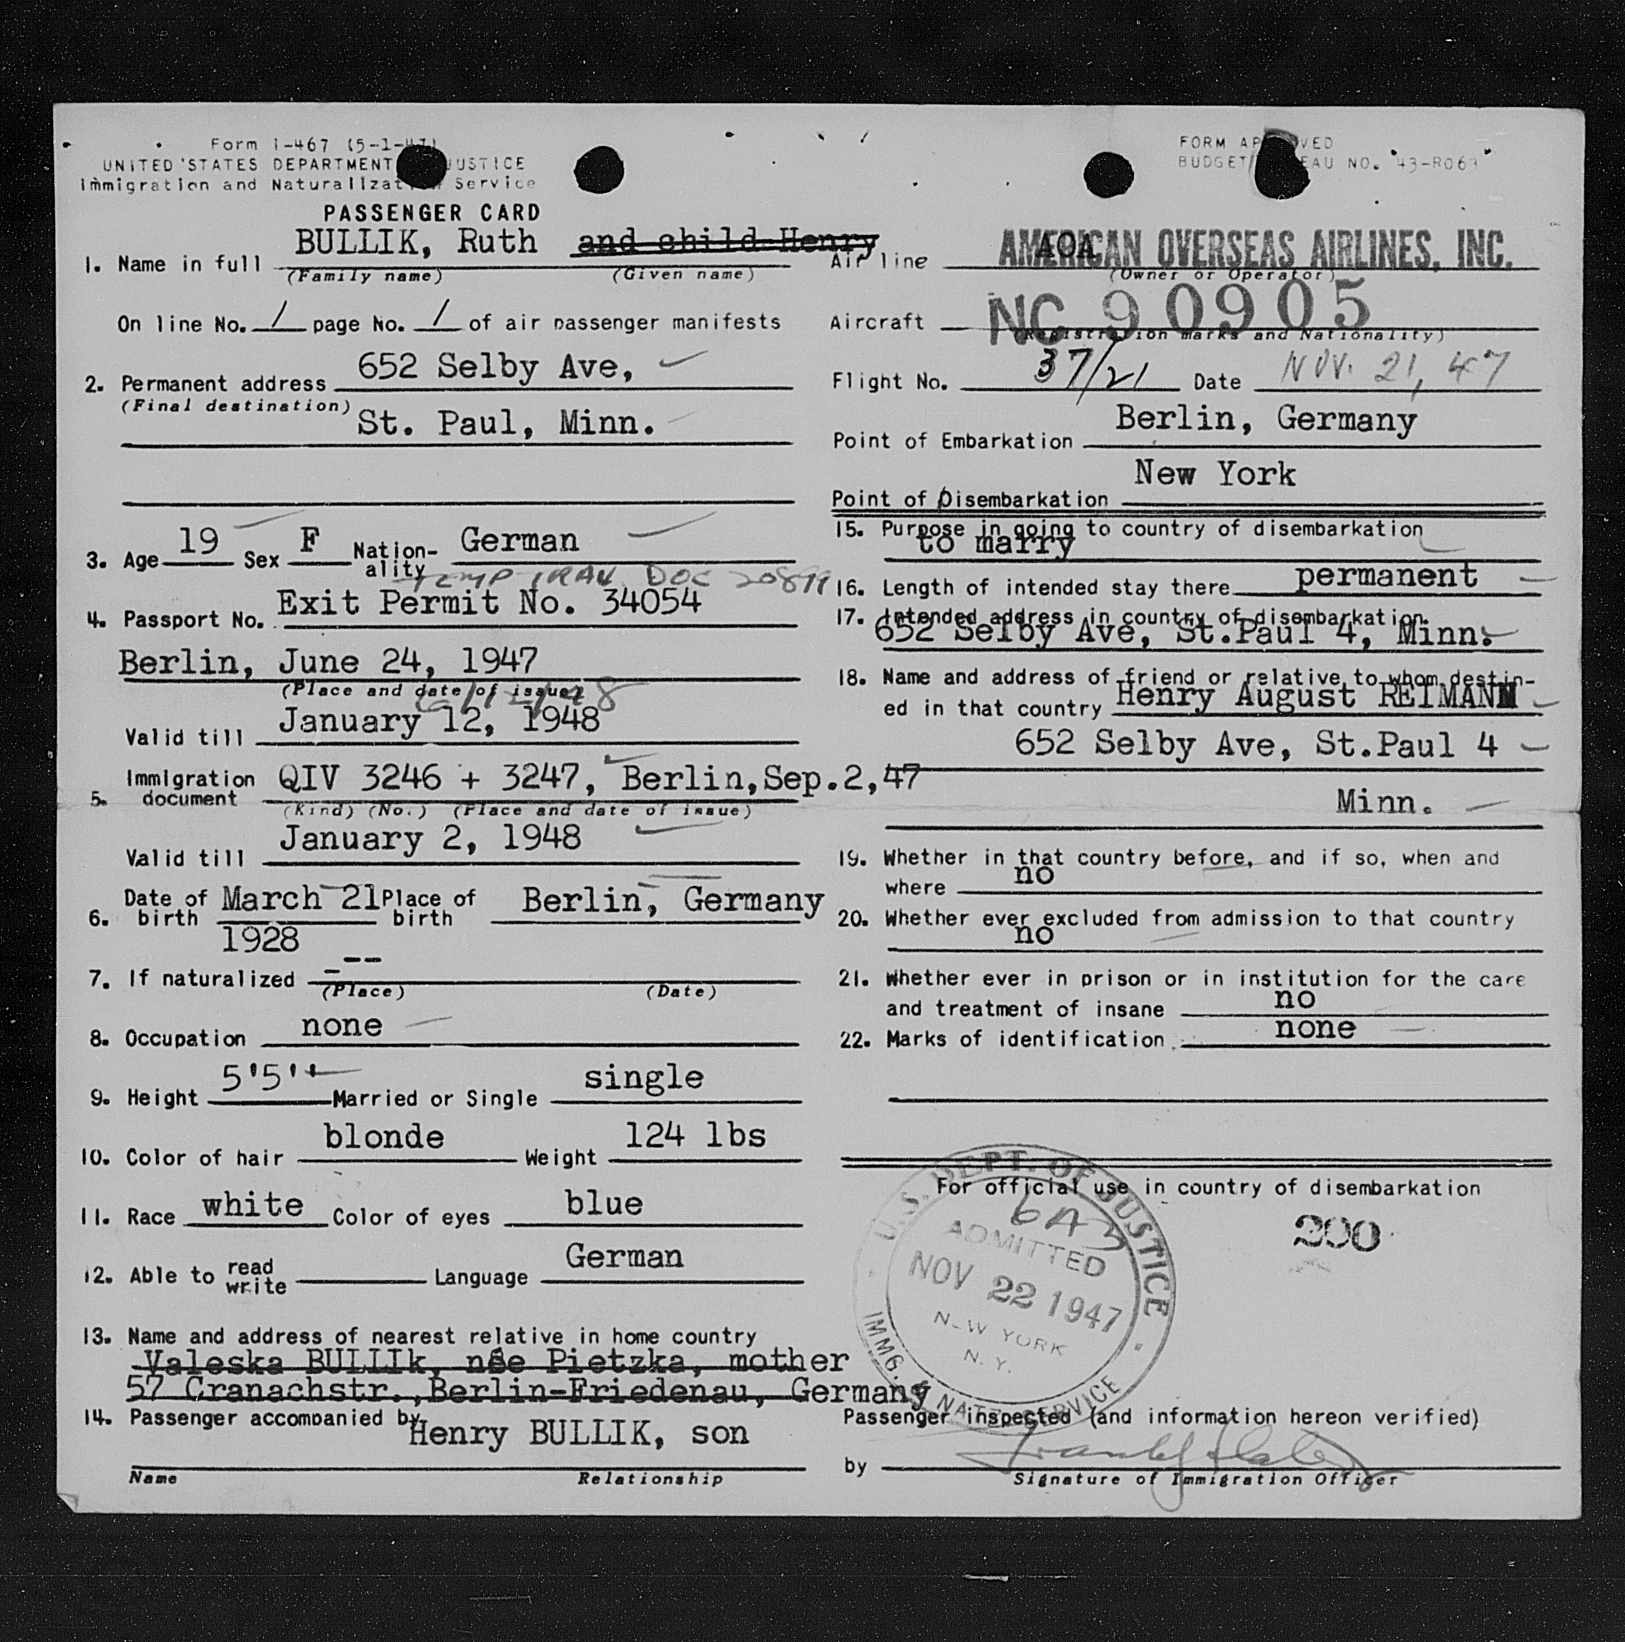 Form I-467 (5-1-47)
UNITED STATES DEPARTMENT JUSTICE
Immigration and Naturalization Service
PASSENGER CARD
FORM APPROVED
BUDGET BUREAU NO. 43-R069
1. Name in full BULLIK, Ruth and child Henry
(Family name) (Given name)
On line No. 1 page No. 1 of air passenger manifests
2. Permanent address 652 Selby Ave,
(Final destination) St. Paul, Minn.
3. Age 19 Sex F Nationality German
TEMP TRAV DOC
4. Passport No. Exit Permit No. 34054
Berlin, June 24, 1947
(Place and date of issue)
Valid till January 12, 1948
5. Immigration document QIV 3246 + 3247, Berlin, Sep.2,47
(Kind) (No.) (Place and date of issue)
Valid till January 2, 1948
6. Date of birth March 21 1928 Place of birth Berlin, Germany
7. If naturalized ---
(Place) (Date)
8. Occupation none
9. Height 5'5'' Married or Single single
10. Color of hair blonde Weight 124 lbs
11. Race white Color of eyes blue
12. Able to read write Language German
13. Name and address of nearest relative in home country
Valeska BULLIk, née Pietzka, mother
57 Cranachstr.,Berlin-Friedenau, Germany
14. Passenger accompanied by Henry BULLIK, son
Name Relationship
Air line AOA AMERICAN OVERSEAS AIRLINES, INC.
(Owner or Operator)
Aircraft NC 90905
(Registration marks and Nationality)
Flight No. 37/21 Date NOV. 21, 47
Point of Embarkation Berlin, Germany
Point of Disembarkation New York
15. Purpose in going to country of disembarkation
to marry
16. Length of intended stay there permanent
17. Intended address in country of disembarkation
652 Selby Ave, St.Paul 4, Minn.
18. Name and address of friend or relative to whom destin-
ed in that country Henry August REIMANN
652 Selby Ave, St.Paul 4
Minn.
19. Whether in that country before, and if so, when and
where no
20. Whether ever excluded from admission to that country
no
21. Whether ever in prison or in institution for the care
and treatment of insane no
22. Marks of identification none
For official use in country of disembarkation
200
U.S. DEPT. OF JUSTICE
6A3
ADMITTED
NOV 22 1947
NEW YORK
N. Y.
IMMG. & NAT'L SERVICE
Passenger inspected (and information hereon verified)
by
Signature of Immigration Officer